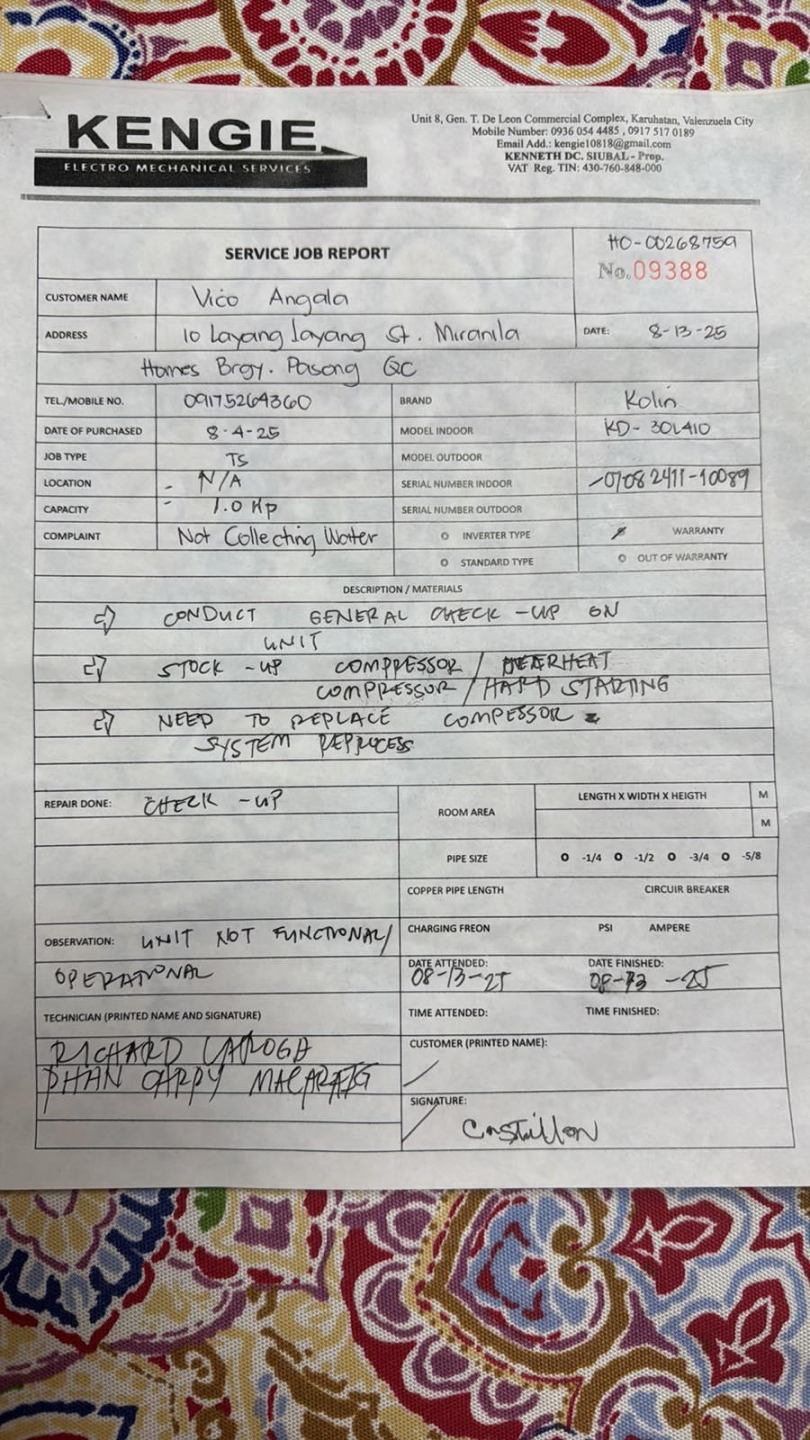 KENGIE
ELECTRO MECHANICAL SERVICES
Unit 8, Gen. T. De Leon Commercial Complex, Karuhatan, Valenzuela City
Mobile Number: 0936 054 4485 , 0917 517 0189
Email Add.: kengie10818@gmail.com
KENNETH DC. SIUBAL - Prop.
VAT Reg. TIN: 430-760-848-000
SERVICE JOB REPORT
HO-00268759
No. 09388
CUSTOMER NAME Vico Angala
ADDRESS 10 Layang layang St. Miranila DATE: 8-13-25
Homes Brgy. Pasong QC
TEL./MOBILE NO. 09175264360 BRAND Kolin
DATE OF PURCHASED 8-4-25 MODEL INDOOR KD-30L410
JOB TYPE TS MODEL OUTDOOR
LOCATION - N/A SERIAL NUMBER INDOOR -07082411-10089
CAPACITY - 1.0 Hp SERIAL NUMBER OUTDOOR
COMPLAINT Not Collecting Water INVERTER TYPE WARRANTY
STANDARD TYPE OUT OF WARRANTY
DESCRIPTION / MATERIALS
⇨ CONDUCT GENERAL CHECK -UP ON
UNIT
⇨ STOCK -UP COMPRESSOR /
COMPRESSOR / HARD STARTING
⇨ NEED TO REPLACE COMPESSOR
SYSTEM REPROCESS
REPAIR DONE: CHECK -UP
ROOM AREA LENGTH X WIDTH X HEIGTH M
M
PIPE SIZE O -1/4 O -1/2 O -3/4 O -5/8
COPPER PIPE LENGTH CIRCUIR BREAKER
OBSERVATION: UNIT NOT FUNCTIONAL/
OPERATIONAL
CHARGING FREON PSI AMPERE
DATE ATTENDED: DATE FINISHED:
08-13-25 08-13-25
TECHNICIAN (PRINTED NAME AND SIGNATURE) TIME ATTENDED: TIME FINISHED:
RICHARD
CUSTOMER (PRINTED NAME):
SIGNATURE:
Castillon